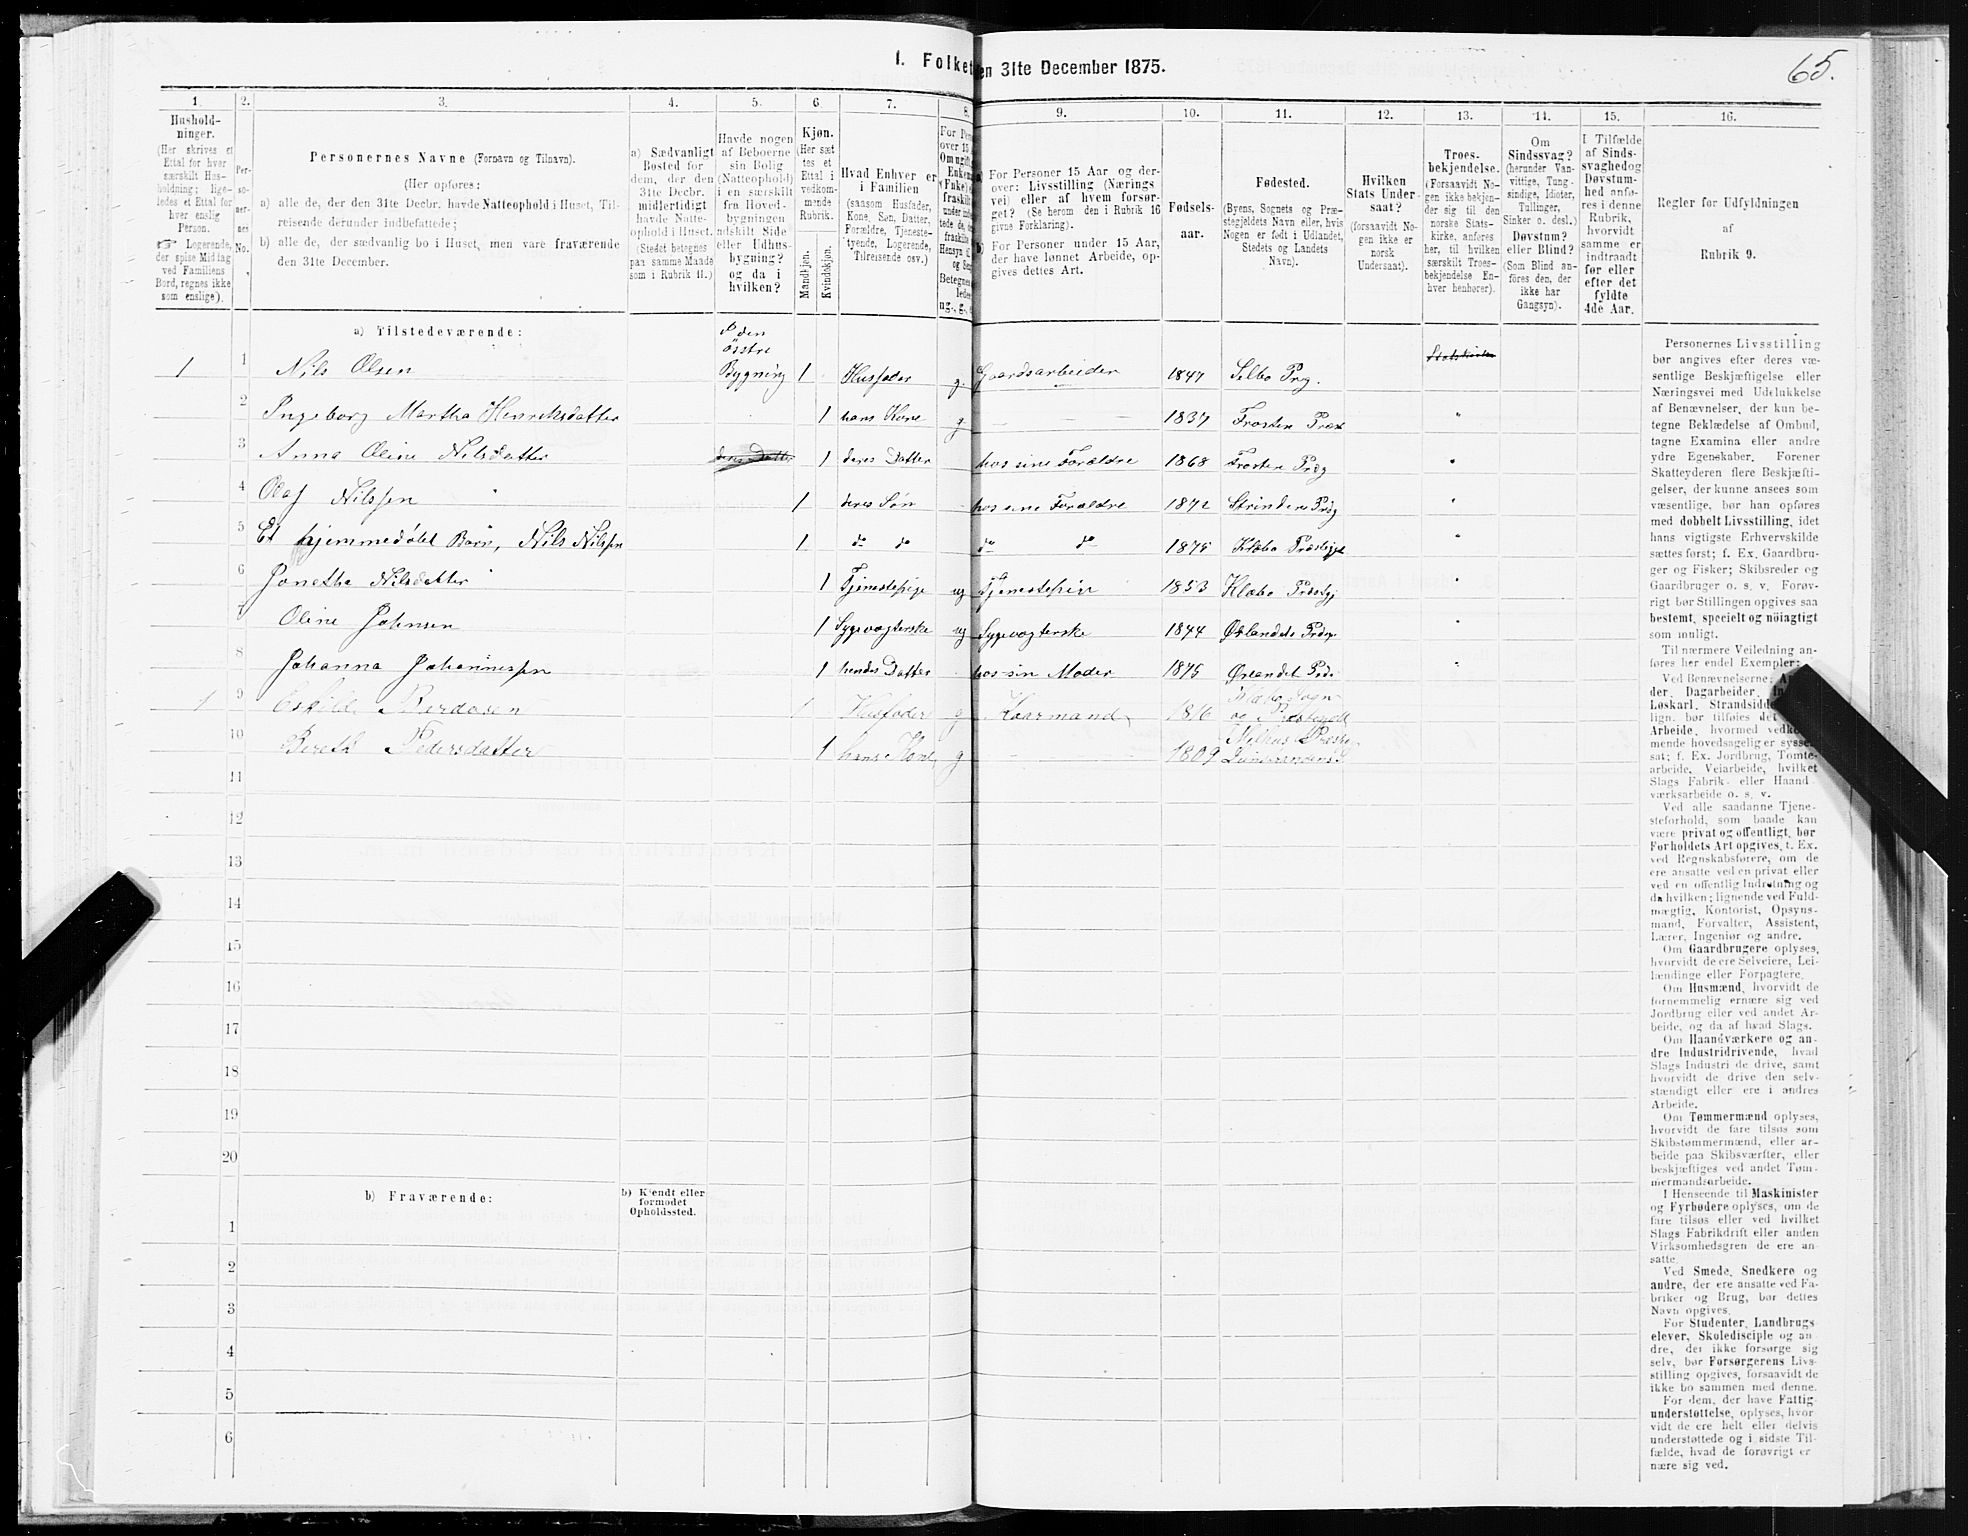 65.
I. Folket
en 31te December 1875.
1. 2. 3. 4. 5. 6. 7. 8. 9. 10. 11. 12. 13. 14. 15. 16.
Hushold-
ninger.
(Her skrives et
Ettal for hver
særskilt Hus-
holdning; lige-
ledes et Ettal for
hver enslig
Person.
☞ Logerende,
der spise Middag
ved Familiens
Bord, regnes ikke
som enslige).
Per-
so-
ner-
nes
No.
Personernes Navne (Fornavn og Tilnavn).
(Her opføres:
a) alle de, der den 31te Decbr. havde Natteophold i Huset, Til-
reisende derunder indbefattede;
b) alle de, der sædvanlig bo i Huset, men vare fraværende
den 31te December.
a) Sædvanligt
Bosted for
dem, der den
31te Decbr.
midlertidigt
havde Natte-
ophold i Huset.
(Stedet betegnes
paa samme Maade
som i Rubrik 11.)
Havde nogen
af Beboerne
sin Bolig
(Natteophold)
i en særskilt
fra Hoved-
bygningen
adskilt Side
eller Udhus-
bygning?
og da i
hvilken?
Kjøn.
(Her sæt
tes et
Ettal i
vedkom-
mende
Rubrik.
Mandkjøn.
Kvindekjøn.
Hvad Enhver er
i Familien
(saasom Husfader,
Kone, Søn, Datter,
Forældre, Tjeneste-
tyende, Logerende,
Tilreisende osv.)
For Pe
over 15
Om ugift,
Enkem
(Enke) e
fraskilt
a) For Personer 15 Aar og der-
over: Livsstilling (Nærings
vei) eller af hvem forsør-
get? (Se herom den i Rubrik 16
givne Forklaring).
b) For Personer under 15 Aar,
der have lønnet Arbeide, op-
gives dettes Art.
Fødsels-
aar.
Fødested.
(Byens, Sognets og Præ-
stegjeldets Navn eller, hvis
Nogen er født i Udlandet,
Stedets og Landets
Navn).
Hvilken
Stats Under-
saat?
(forsaavidt No-
gen ikke er
norsk
Undersaat).
Troes-
bekjendelse.
(Forsaavidt No-
gen ikke bekjen-
der sig til den
norske Stats-
kirke, anføres
her, til hvilken
særskilt Troes-
bekjendelse En-
hver henhører).
Om
Sindssvag?
(herunder Van-
vittige, Tung-
sindige, Idioter,
Tullinger,
Sinker o. desl.)
Døvstum?
eller Blind?
(Som Blind an-
føres den, der
ikke har
Gangsyn).
I Tilfælde
af Sinds-
svaghed og
Døvstum-
hed anfø-
res i denne
Rubrik,
hvorvidt
samme er
indtraadt
før eller
efter det
fyldte
4de Aar.
Regler for Udfyldningen
af
Rubrik 9.
a) Tilstedeværende:
1 1 Nils Olsen P den østre Bygning 1 Husfader g. Gaardsarbeider 1847 Selbo Prg. Statskirken
2 Ingeborg Martha Henriksdatter 1 hans Kone g 1837 Frosten Præst "
3 Anna Oline Nilsdatter deres Datter 1 deres Datter hos sine Forældre 1868 Frosten Prdg "
4 Olaf Nilssen 1 deres Søn hos sine Forældre 1872 Strindens Prdg "
5 Et hjemmedøbt Barn, Nils Nilssen 1 do do do do 1875 Klæbo Præstegj "
6 Jonetha Nilsdatter 1 Tjenestepige ug Tjenestepige 1853 Klæbo Præstgj "
7 Oline Johnsen 1 Sygevogterske ug Sygevogterske 1844 Ørlandets "
8 Johanna Johannessen 1 hendes Datter hos sin Moder 1875 Ørlandet "
1 9 Eskild 1 Husfader g Kaarmand 1816 Klæbo Sogn og Præstegjeld
10 Bereth Pedersdatter 1 hans Kone g 1809 Melhus
11
12
13
14
15
16
17
18
19
20
b) Fraværende:
b) Kjendt eller
formodet
Opholdssted.
1
2
3
4
5
6
Personernes Livsstilling
bør angives efter deres væ-
sentlige Beskjæftigelse eller
Næringsvei med Udelukkelse
af Benævnelser, der kun be-
tegne Beklædelse af Ombud,
tagne Examina eller andre
ydre Egenskaber. Forener
Skatteyderen flere Beskjæfti-
gelser, der kunne ansees som
væsentlige, bør han opføres
med dobbelt Livsstilling, idet
hans vigtigste Erhvervskilde
sættes først; f. Ex. Gaardbru-
ger og Fisker; Skibsreder og
Gaardbruger o. s. v. Forøv-
rigt bør Stillingen opgives saa
bestemt, specielt og nöiagtigt
som muligt.
Til nærmere Veiledning an-
føres her endel Exempler:
Ved Benævnelserne:
der, Dagarbeider,
Løskarl, Strandsidd
lign. bør tilføies det
Arbeide, hvormed vedk
mende hovedsagelig er syssel
sat; f. Ex. Jordbrug, Tomte-
arbeide, Veiarbeide, hvilket
Slags Fabrik- eller Haand
værksarbeide o. s. v.
Ved alle saadanne Tjene-
steforhold, som baade kan
være privat og offentligt, bør
Forholdets Art opgives, t. Ex.
ved Regnskabsførere, om de
ere ansatte ved en privat eller
ved en offentlig Indretning og
da hvilken; lignende ved Fuld-
mægtig, Kontorist, Opsyns-
mand, Forvalter, Assistent,
Lærer, Ingeniør og andre.
Om Gaardbrugere oplyses,
hvorvidt de ere Selveiere, Lei-
lændinge eller Forpagtere.
Om Husmænd, hvorvidt de
fornemmelig ernære sig ved
Jordbrug eller ved andet Ar-
beide, og da af hvad Slags.
Om Haandværkere og an-
dre Industridrivende, hvad
Slags Industri de drive, samt
hvorvidt de drive den selv-
stændigt eller ere i andres
Arbeide.
Om Tømmermænd oplyses,
hvorvidt de fare tilsøs som
Skibstømmermænd, eller ar-
beide paa Skibsværfter, eller
beskjæftiges ved andet Tøm-
mermandsarbeide.
I Henseende til Maskinister
og Fyrbødere oplyses, om de
fare tilsøs eller ved hvilket
Slags Fabrikdrift eller anden
Virksomhedsgren de ere an-
satte.
Ved Smede, Snedkere og
andre, der ere ansatte ved Fa-
briker og Brug, bør dettes
Navn opgives.
For Studenter, Landbrugs-
elever, Skoledisciple og an-
dre, der ikke forsørge sig
selv, bør Forsørgerens Livs-
stilling opgives, forsaavidt de
ikke bo sammen med denne.
For dem, der have Fattig-
understøttelse, oplyses, hvor-
vidt de ere helt eller delvis
understøttede og i sidste Til-
fælde, hvad de forøvrigt er
nære sig ved.